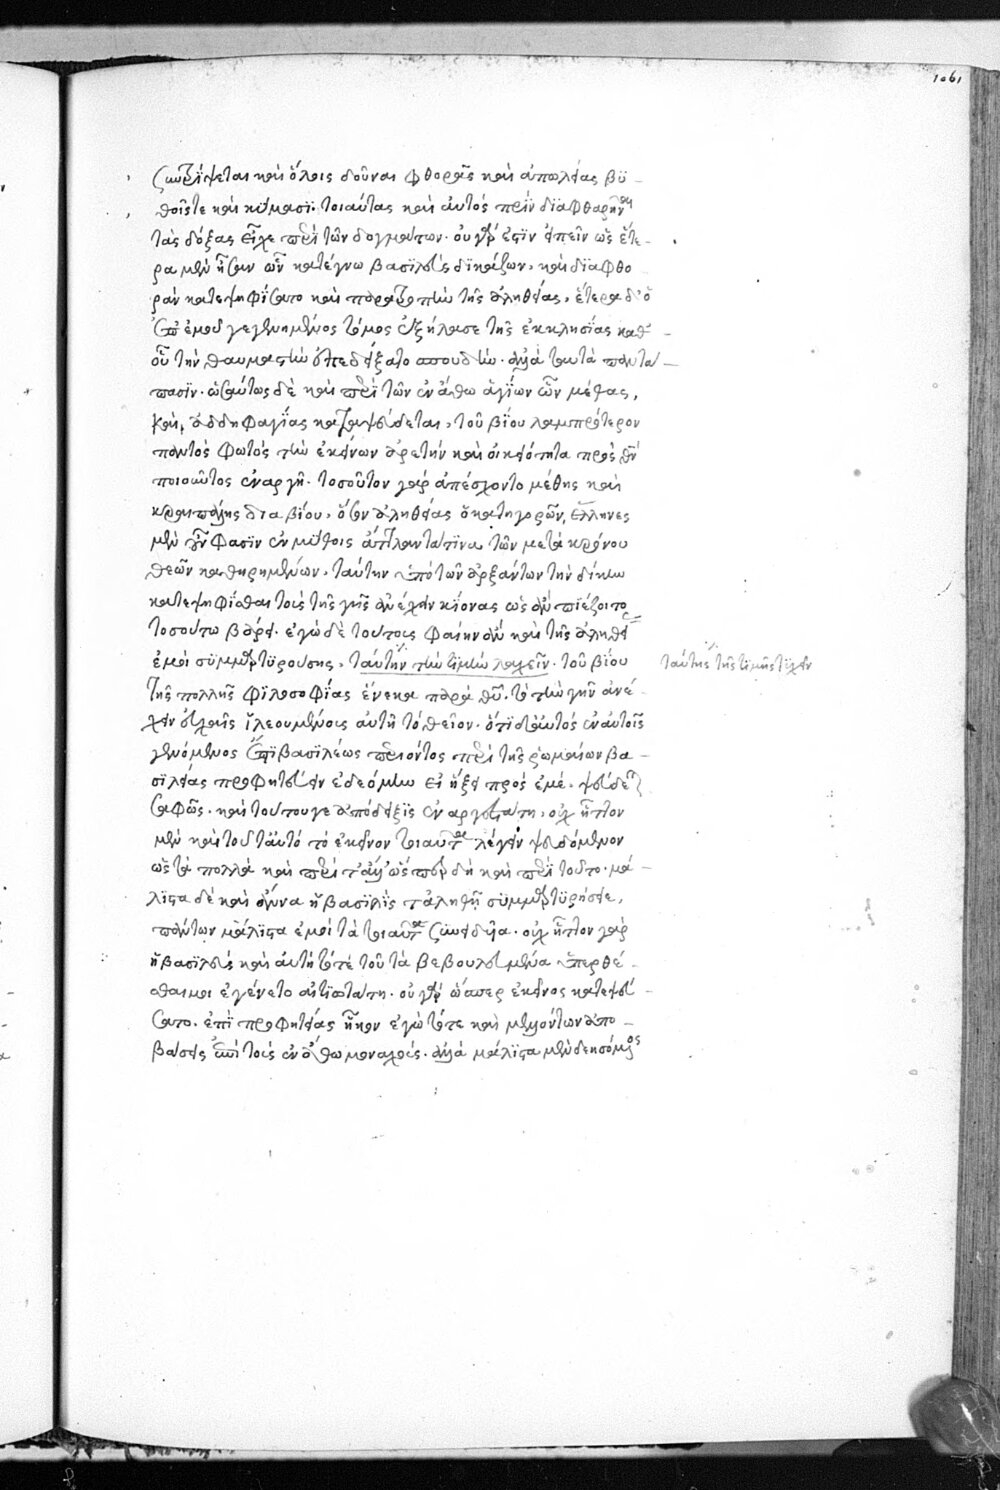 1061
καὶ ὅλοις δοῦναι φθορᾶς καὶ ἀπωλείας βυ-
θοῖς τε καὶ κύμασι. τοιαύτας καὶ αὐτὸς πρὶν διαφθαρῆναι
τὰς δόξας εἶχε περὶ τῶν δογμάτων. οὐ γὰρ ἔστιν εἰπεῖν ὡς ἕτε-
ρα μὲν ἦσαν ὧν κατέγνω βασιλεὺς δικάζων, καὶ διαφθο
ρὰν κατεψηφίσατο καὶ τῆς ἀληθείας, ἕτερα δ' ὁ
ὑπ' ἐμοῦ γεγενημένος τόμος ἐξήλασε τῆς ἐκκλησίας καθ'
οὗ τὴν θαυμαστὴν ἐπεδείξατο σπουδήν. ἀλλὰ ταυτὰ παντά-
πασιν. ὡσαύτως δὲ καὶ περὶ τῶν ἐν ἄθω ἁγίων
καὶ ἀδδηφαγίας καταψεύδεται, τοῦ βίου λαμπρότερον
παντὸς φωτὸς τὴν ἐκείνων ἀρετὴν καὶ οἰκειότητα πρὸς θεὸν
ποιοῦντος ἐναργῆ. τοσοῦτον γὰρ ἀπέσχοντο μέθης καὶ
κραιπάλης διὰ βίου, ὅσον ἀληθείας ὁ κατηγορῶν. ἕλληνες
μὲν οὖν φασὶν ἐν μύθοις ἄτλαντα τινα τῶν μετὰ κρόνου
θεῶν καθῃρημένων, ταύτην ὑπὸ τῶν ἀρξάντων τὴν δίκην
κατεψηφίσθαι τοὺς τῆς γῆς ἀνέχειν κίονας ὡς ἂν πιέζοιτο
τοσούτω βάρει. ἐγὼ δὲ τούτοις φαίην ἂν καὶ τῆς ἀληθεί
ἐμοὶ συμμαρτυρούσης, ταύτην τὴν τιμὴν λαχεῖν. τοῦ βίου ταύτης τῆς τιμῆς τυχεῖν
τῆς πολλῆς φιλοσοφίας ἕνεκα παρὰ θεοῦ. τὸ τὴν γῆν ἀνέ-
χειν εὐχαῖς ἵλεουμένοις αὐτῇ τὸ θεῖον. ὅτι δ' αὐτὸς ἐν αὐτοῖς
γενόμενος ἐπὶ βασιλέως περιόντος περὶ τῆς ῥωμαίων βα-
σιλείας προφητεύειν ἐδεόμην εἰ ἥξει πρὸς ἐμέ. ψεύδεται
σαφῶς. καὶ τούτου γε ἀπόδειξις ἐναργεστάτη, οὐχ ἧττον
μὲν καὶ τοῦτ' αὐτὸ τὸ ἐκεῖνον τοιαῦτα λέγειν ψευδόμενον
ὡς τὰ πολλὰ καὶ περὶ τἆλλ' ὥσπερ δὴ καὶ περὶ τούτο. μά-
λιστα δὲ καὶ ἄννα ἡ βασιλὶς τἀληθῆ συμμαρτυρήσει,
πάντων μάλιστα ἐμοὶ τὰ τοιαῦτα συνειδυῖα. οὐχ ἧττον γὰρ
ἡ βασιλεὺς καὶ αὐτὴ τότε τοῦ τὰ βεβουλευμένα ὑπερθέ-
σθαι μοι ἐγένετο αἰτιωτάτη. οὐ γὰρ ὥσπερ ἐκεῖνος κατεψεύ-
σατο. ἐπὶ προφητείας ἧκον ἐγὼ τότε καὶ μελλόντων ἀπο-
βάσεις ἐπὶ τοὺς ἐν ἄθω μοναχούς. ἀλλὰ μάλιστα μὲν δεησόμενος